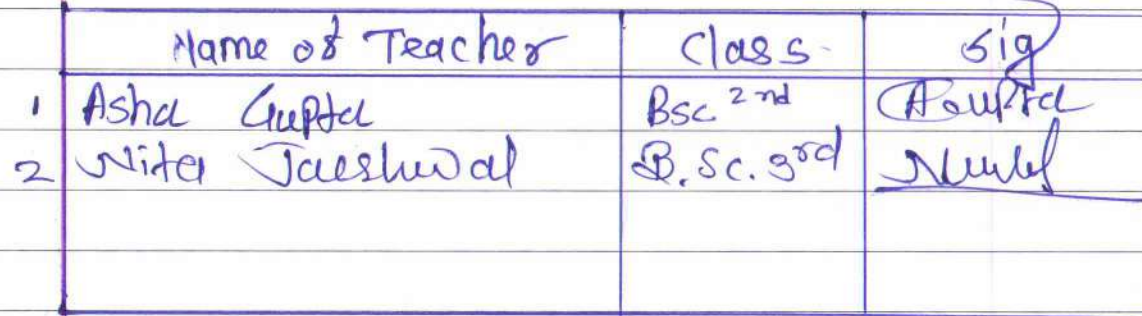 Name of Teacher Class Sig
1 Asha Gupta Bsc 2nd AGupta
2 Nita Jaeshwal B.Sc. 3rd